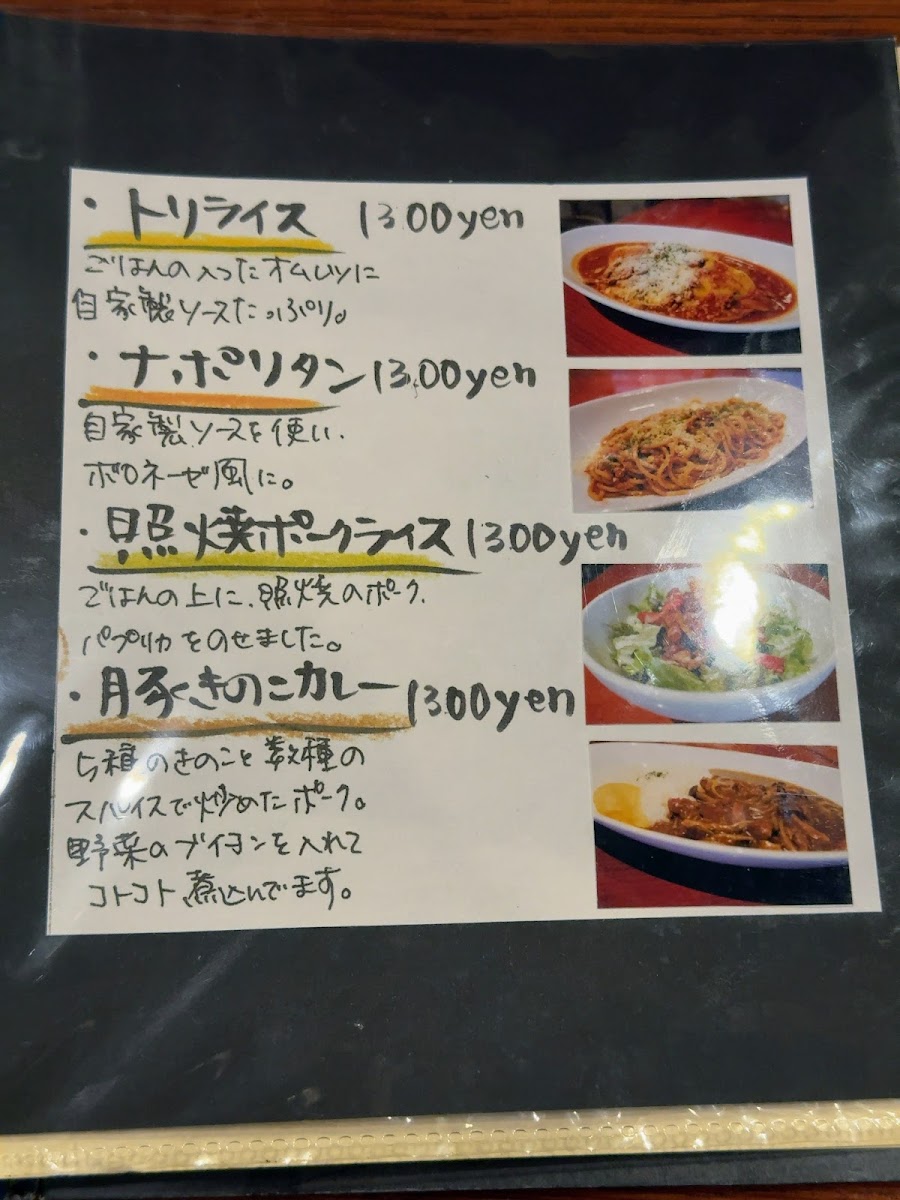 ・トリライス 1300yen
ごはんの入ったオムレツに
自家製ソースたっぷり。
・ナポリタン 1300yen
自家製ソースを使い、
ボロネーゼ風に。
・照焼ポークライス 1300yen
ごはんの上に、照焼のポーク、
パプリカをのせました。
・豚きのこカレー 1300yen
5種のきのこと数種の
スパイスで炒めたポーク。
野菜のブイヨンを入れて
コトコト煮込んでます。